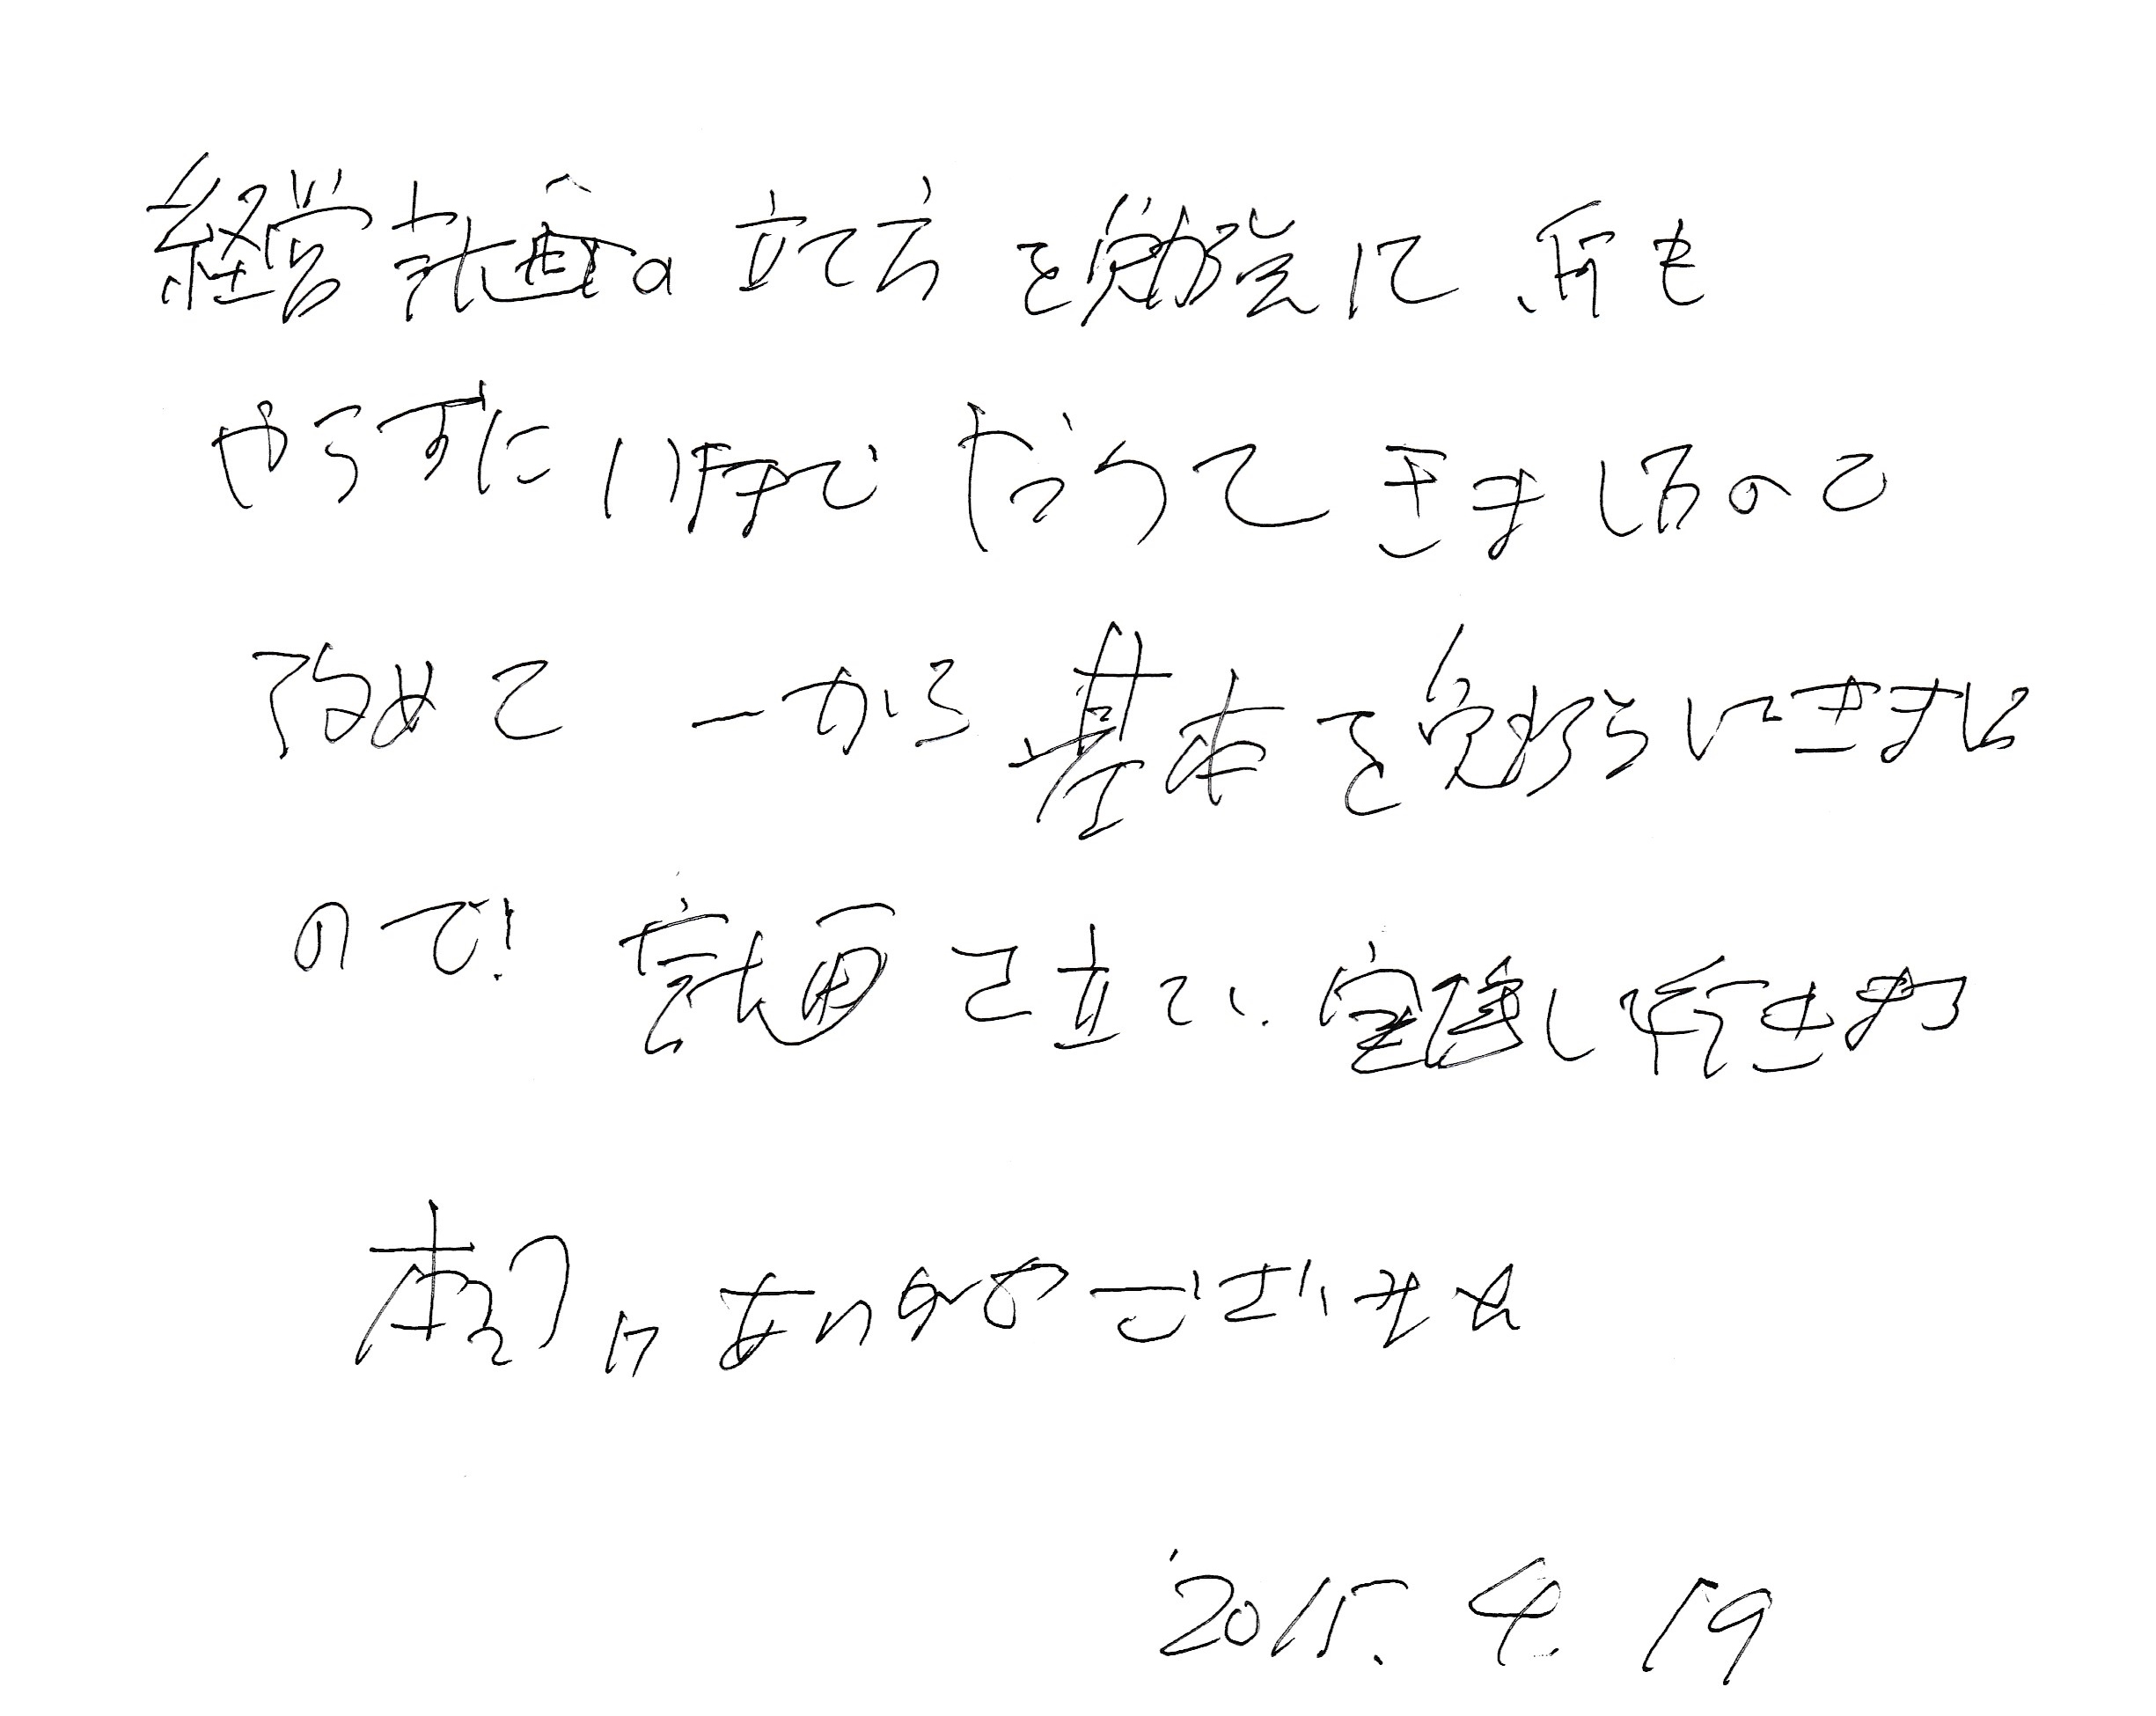 経営計画の立て方を勉強に何も
やらずに今までやってきましたので
改めて一から基本を勉強できました
ので！計画を立て、実践し行きます
本日はありがとうございました
2015. 4. 19